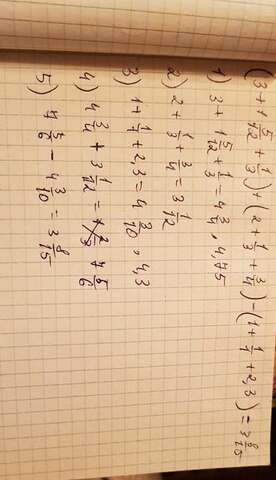 (3+1 5/12+1/3)+(2+1/3+3/4)-(1+1/1+2,3)=3 8/15
1) 3+1 5/12+1/3=4 3/4, 4,75
2) 2+1/3+3/4=3 1/12
3) 1+1/1+2,3=4 3/10, 4,3
4) 4 3/4+3 1/12=7 5/6
5) 7 5/6-4 3/10=3 8/15